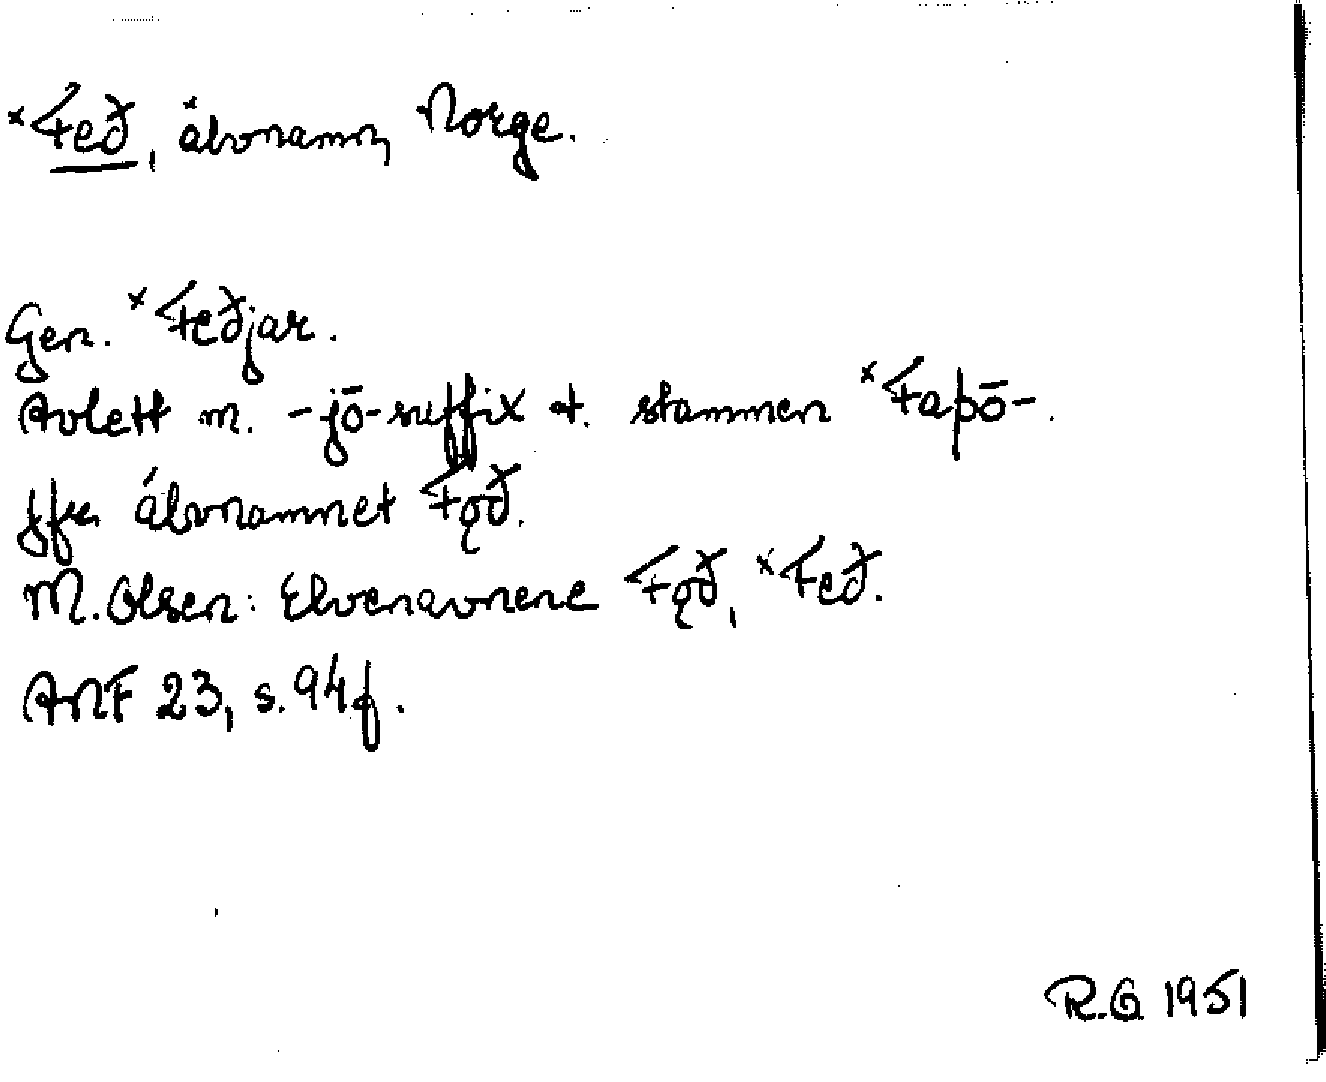 ×Feð, älvnamn, Norge.
Gen. ×Feðjar.
Avlett m. -jō-suffix t. stammen ×Faþō-.
Jfr älvnamnet Fǫð.
M. Olsen: Elvenavnene Fǫð, ×Feð.
ANF 23, s. 94f.
R.G 1951